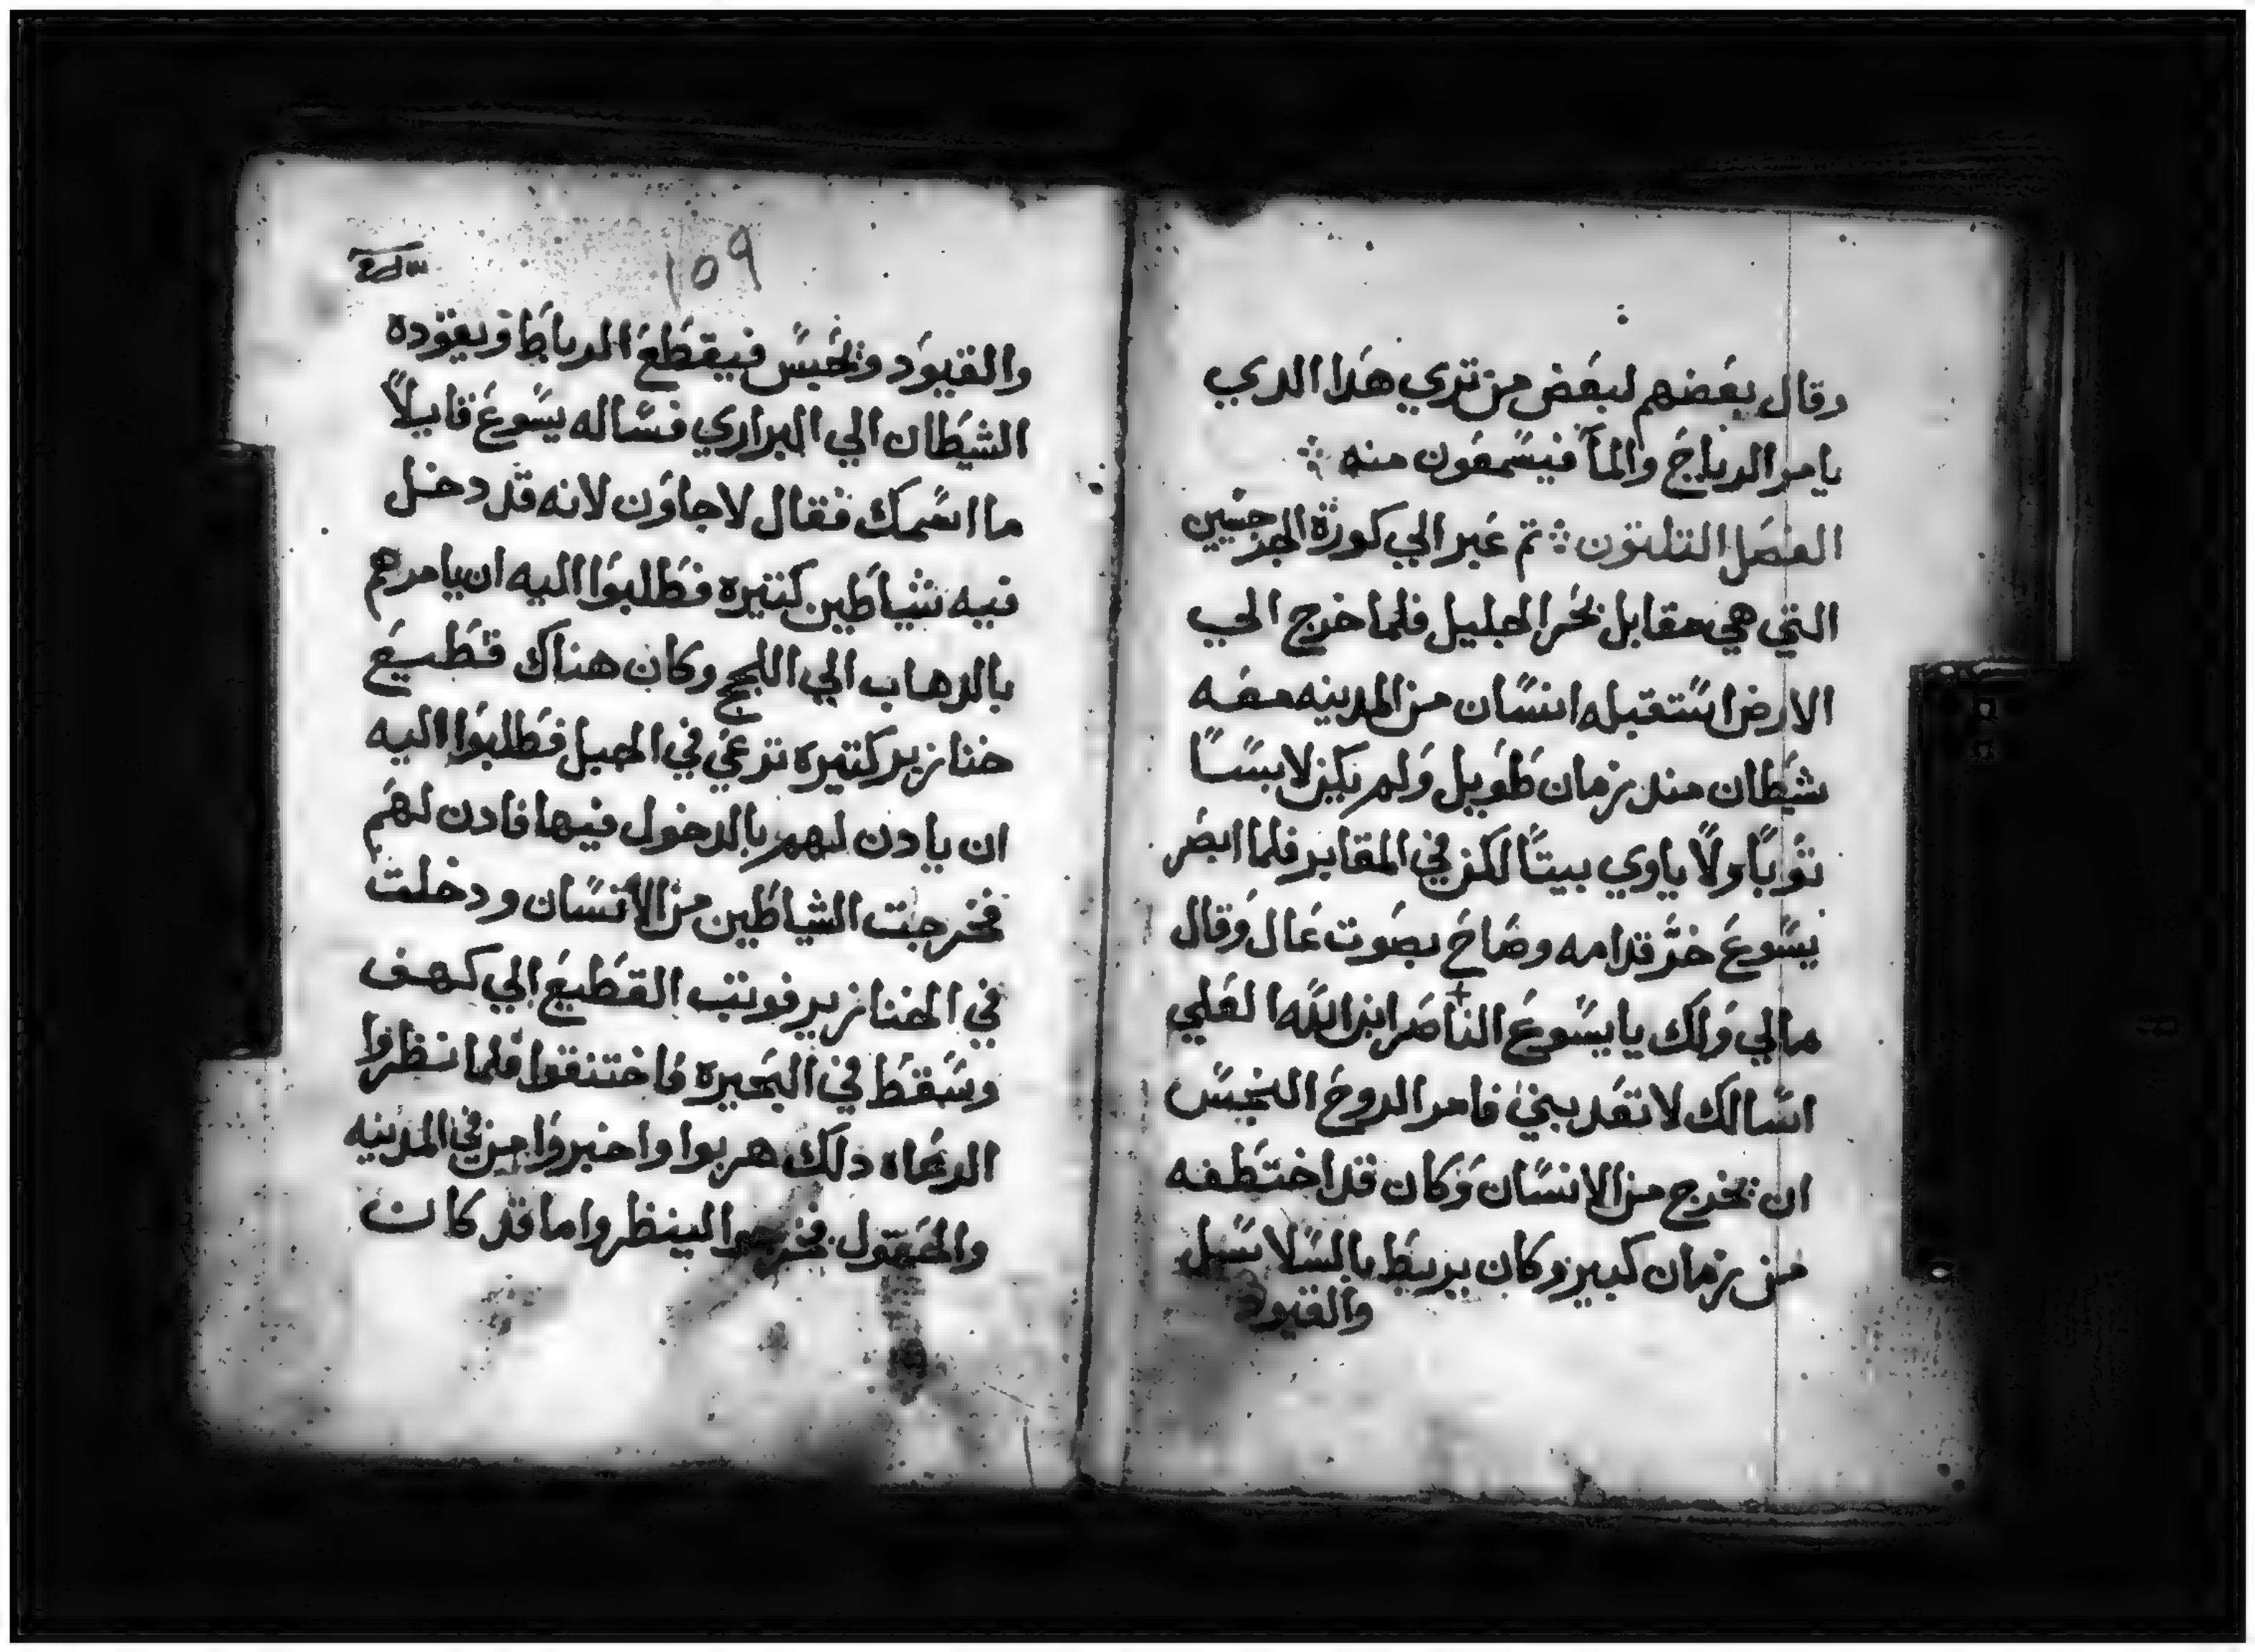 وقال بعضهم لبعض من تري هدا الدي
يامر الرياح والمآ فيسمعون منه
الفصل التلتون ثم عبر الي كورة الجرجسيين
التي هي مقابل بحر الجليل فلما خرج الي
الارض استقبله انسان من المدينه معه
شيطان مند زمان طويل ولم يكن لابسًا
توبًا ولا ياوي بيتًا لكن في المقابر فلما ابصر
يسوع خر قدامه وصاح بصوت عال وقال
مالي ولك يا يسوع الناصر ابن الله العلي
اسالك لا تعدبني فامر الروح النجس
ان يخرج من الانسان وكان قد اختطفه
من زمان كبير وكان يربط بالسلاسل
والقيود
109
والقيود ويحبس فيقطع الرباط ويقوده
الشيطان الي البراري فساله يسوع قايلاً
ما اسمك فقال لاجاون لانه قد دخل
فيه شياطين كتيره فطلبوا اليه ان يامرهم
بالدهاب الي اللجج وكان هناك قطيع
خنازير كتيره ترعي في الجبل فطلبوا اليه
ان يادن لهم بالدخول فيها فادن لهم
فخرجت الشياطين من الانسان ودخلت
في الخنازير فوتب القطيع الي كهف
وسقط في البحيره فاختنقوا فلما نظروا
الرعاه دلك هربوا واخبروا من في المدينه
والحقول فخرجوا لينظروا ما قد كان